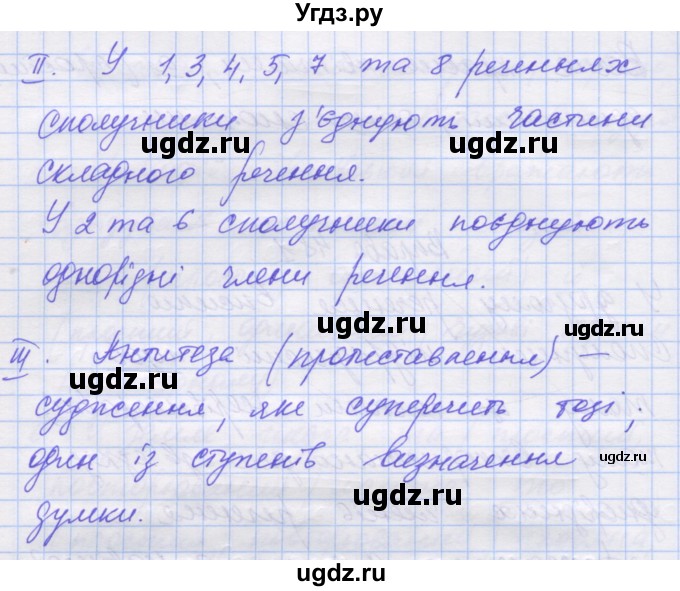 Угдз.ру
II. У 1, 3, 4, 5, 7 та 8 реченнях
сполучники з'єднують частини
ugdz.ru ugdz.ru
складного речення.
У 2 та 6 сполучники поєднують
ugdz.ru
однорідні члени речення.
ugdz.ru ugdz.ru
III. Антитеза (протиставлення) –
ugdz.ru
судження, яке суперечить тезі;
один із ступенів визначення
ugdz.ru
ugdz.ru
думки.
ugdz.ru